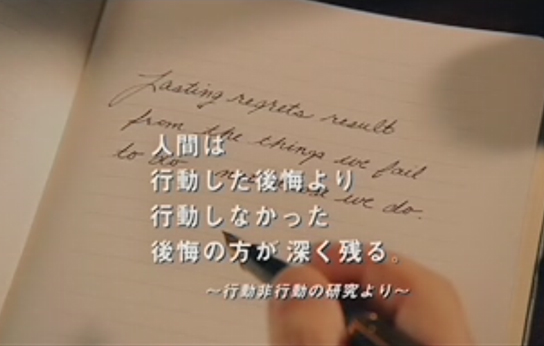 Lasting regrets result
from the things we fail
to do we do.
人間は
行動した後悔より
行動しなかった
後悔の方が 深く残る。
〜行動非行動の研究より〜